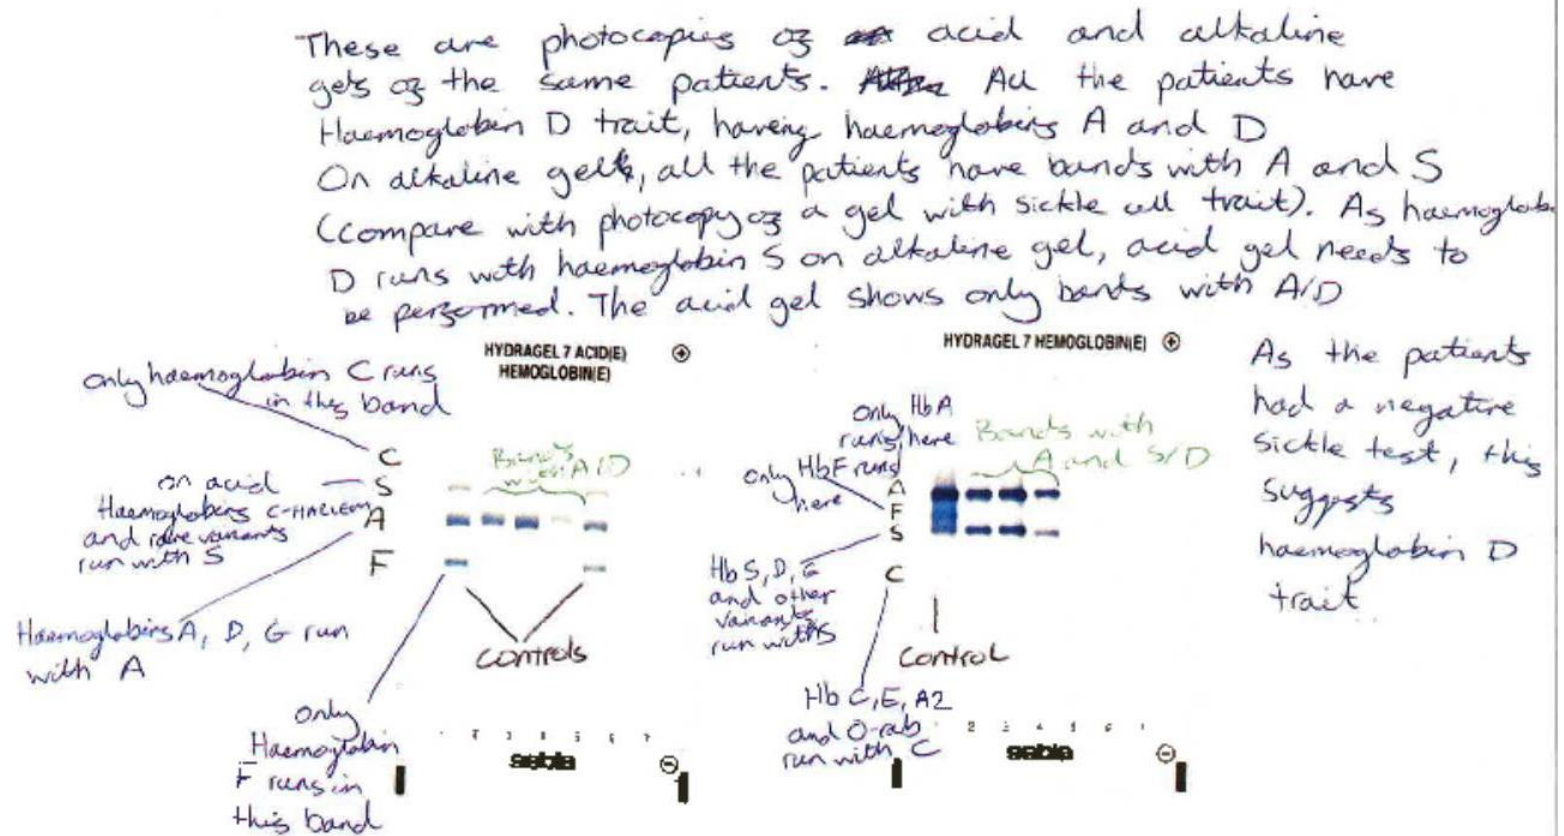 These are photocopies of acid and alkaline
gels of the same patients. All the patients have
Haemoglobin D trait, having haemoglobins A and D
On alkaline gels, all the patients have bands with A and S
(compare with photocopy of a gel with sickle cell trait). As haemoglob
D runs with haemoglobin S on alkaline gel, acid gel needs to
be performed. The acid gel shows only bands with A/D
HYDRAGEL 7 ACID(E)
HEMOGLOBIN(E)
+
only haemoglobin C runs
in this band
C
on acid
Haemoglobins C-HARLEM
and rare variants
run with S
S
A
F
Bands
with A/D
Haemoglobins A, D, G run
with A
controls
only
Haemoglobin
F runs in
this band
2 3 4 5 6 7
sebia
−
HYDRAGEL 7 HEMOGLOBIN(E)
+
only HbA
runs here
Bands with
A and S/D
only HbF runs
here
A
F
S
C
Hb S, D, G
and other
variants
run with S
Control
Hb C, E, A2
and O-rab
run with C
2 3 4 5 6 7
sebia
−
As the patients
had a negative
sickle test, this
suggests
haemoglobin D
trait